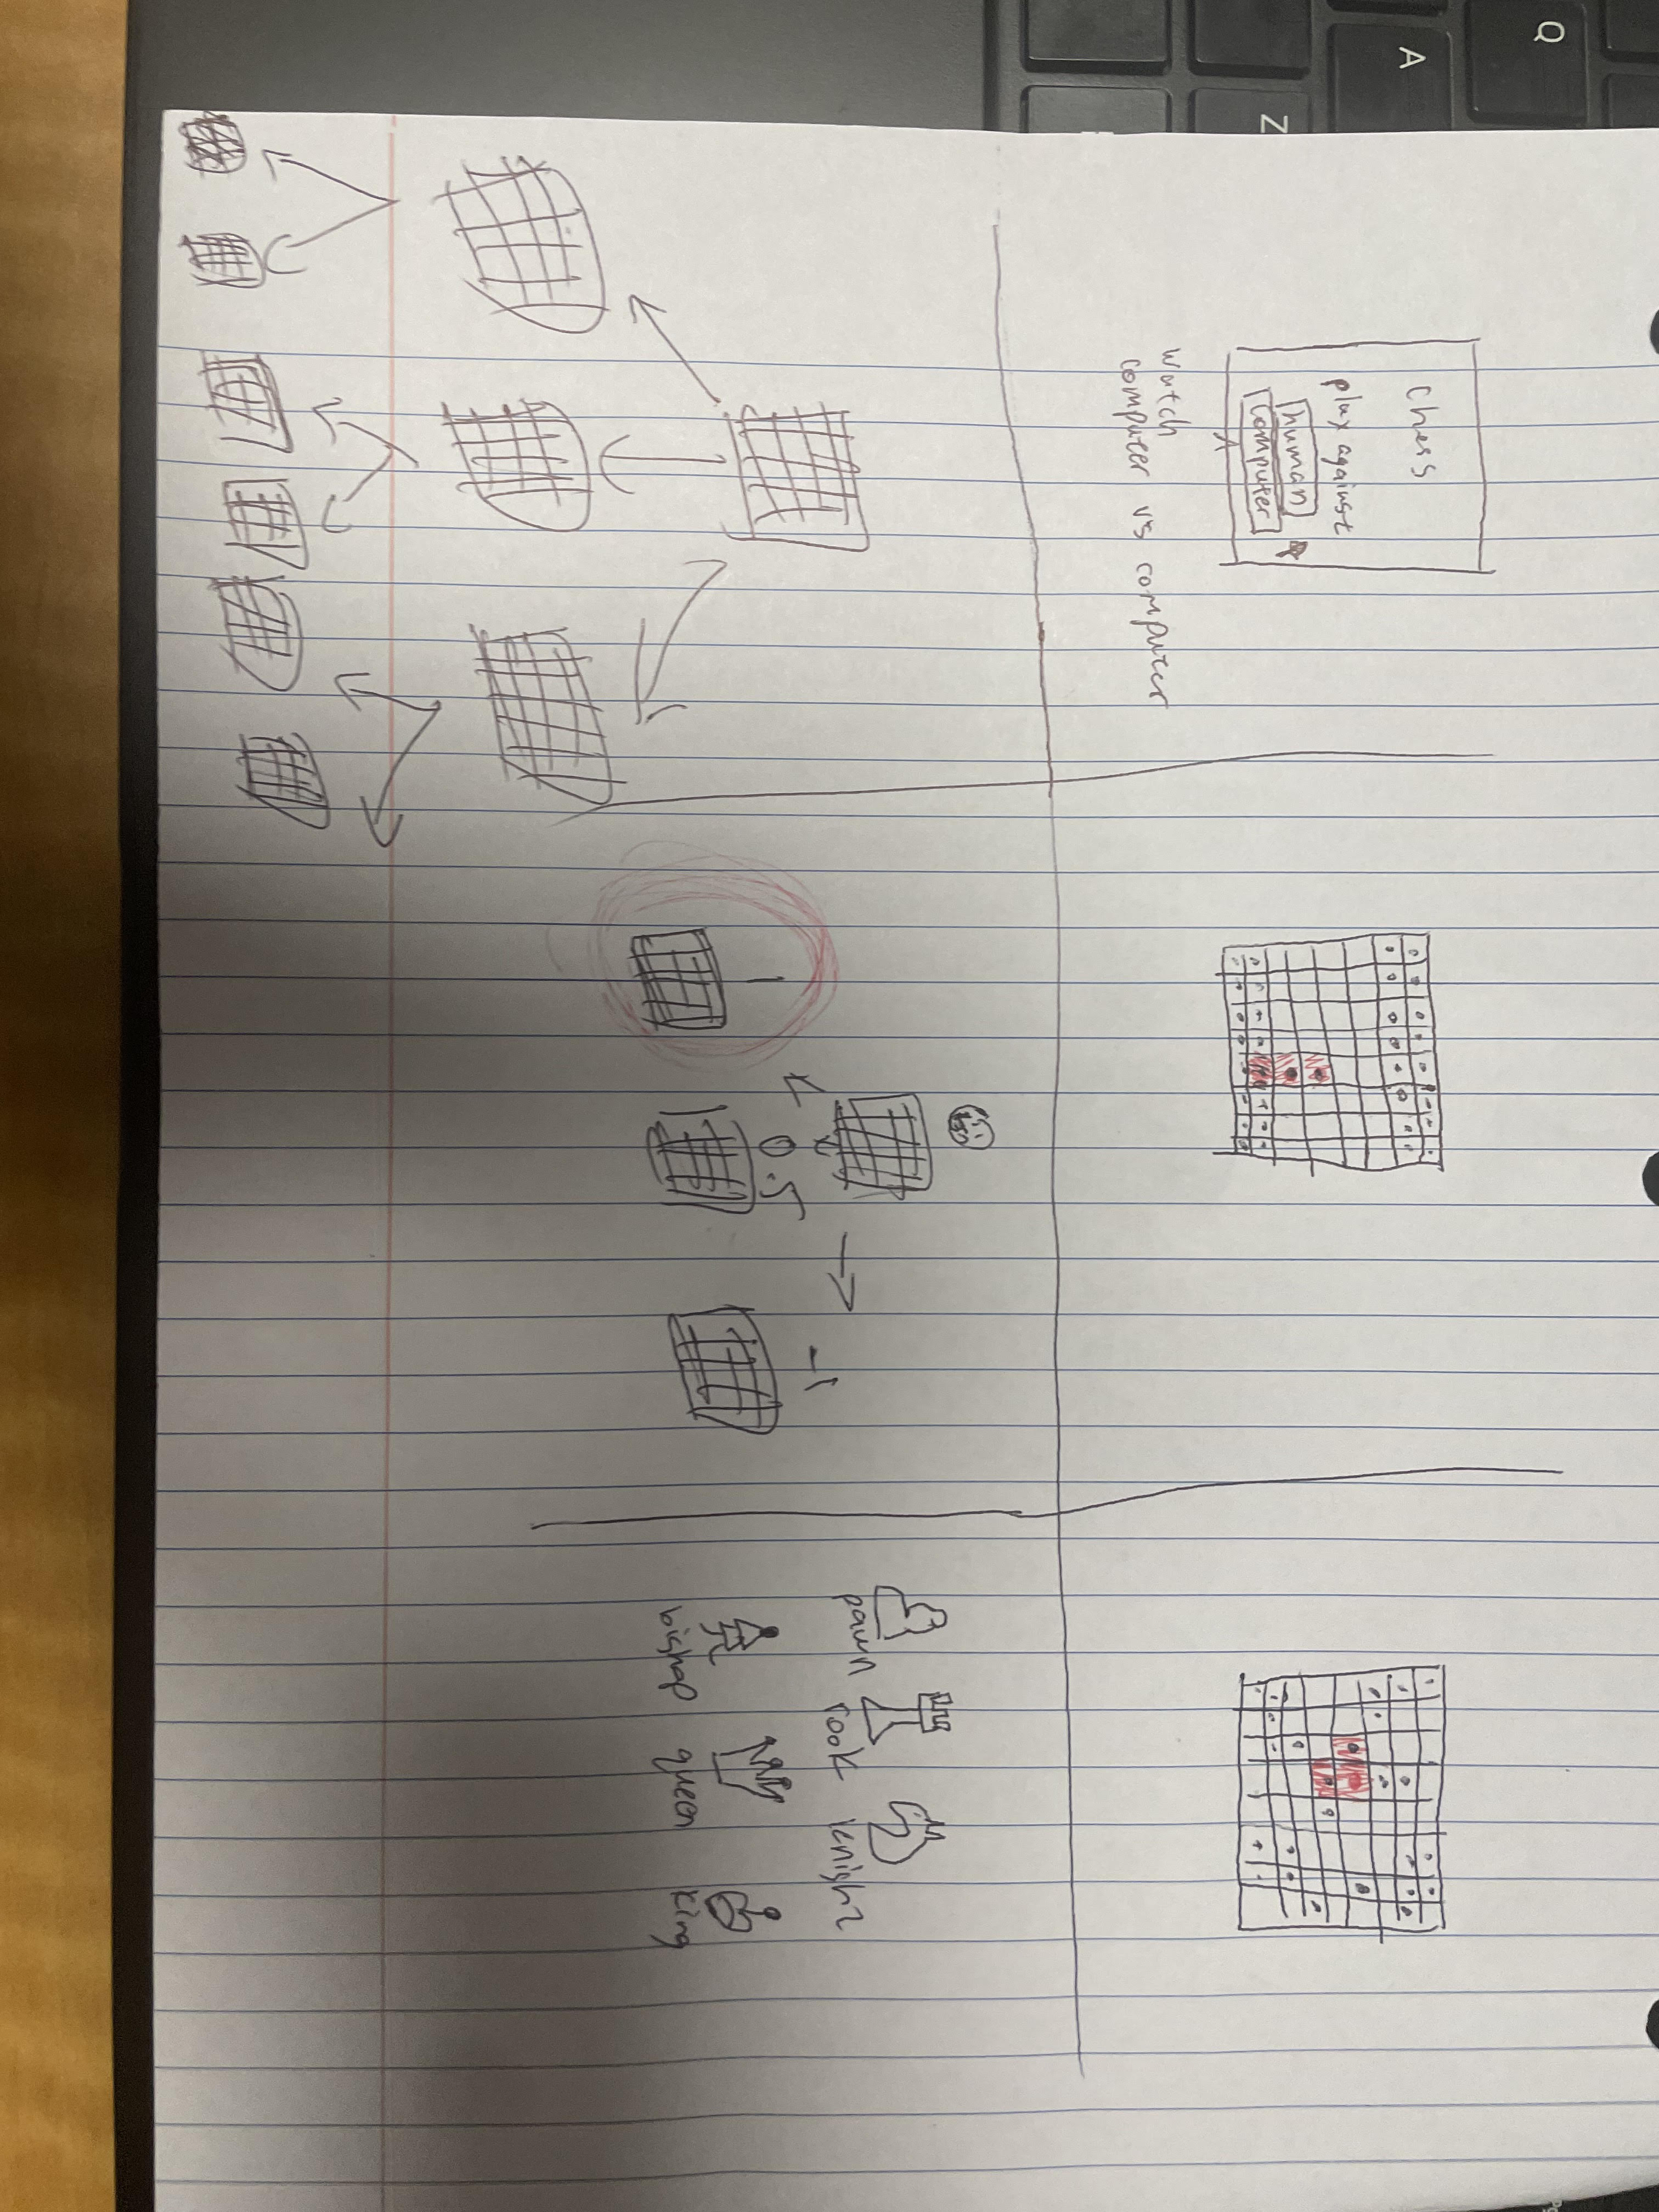 Chess
play against
human
computer
watch
computer vs computer
1
0.5
-1
pawn rook knight
bishop queen king
Q
A
Z